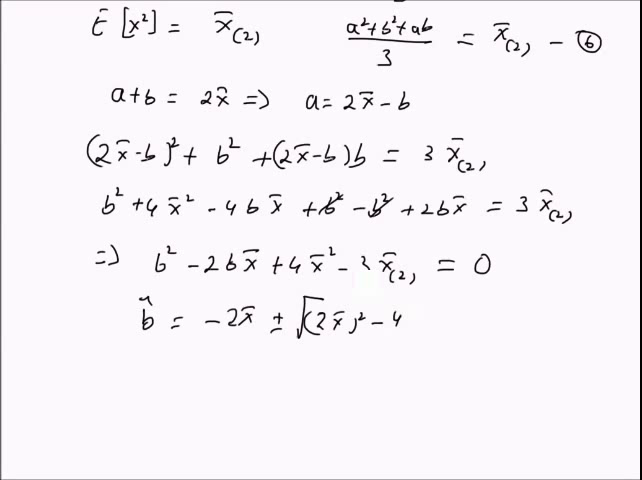 E [x²] = x̄₍₂₎   (a²+b²+ab)/3 = x̄₍₂₎ - ⑥
a+b = 2x̄ => a = 2x̄ - b
(2x̄-b)² + b² + (2x̄-b)b = 3 x̄₍₂₎
b² + 4x̄² - 4bx̄ + b² - b² + 2bx̄ = 3 x̄₍₂₎
=> b² - 2bx̄ + 4x̄² - 3x̄₍₂₎ = 0
b̂ = -2x̄ ± √(2x̄)² - 4